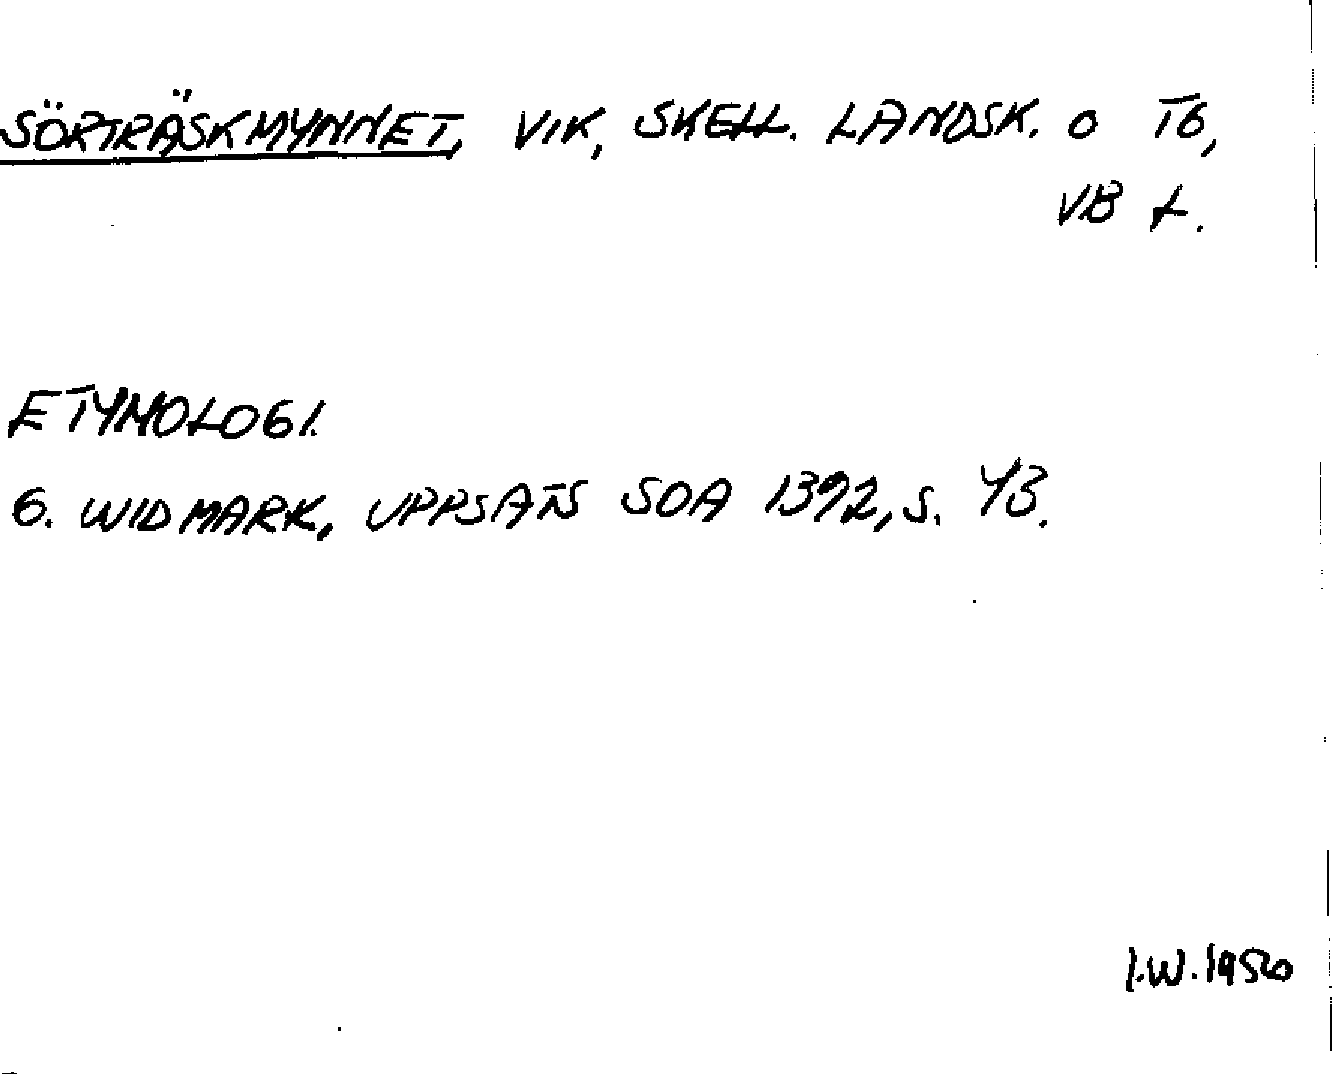 SÖRTRÄSKMYNNET, VIK, SKELL. LANDSK. O TG,
VB L.
ETYMOLOGI.
G. WIDMARK, UPPSATS SOA 1392, S. 43.
I.W. 1950